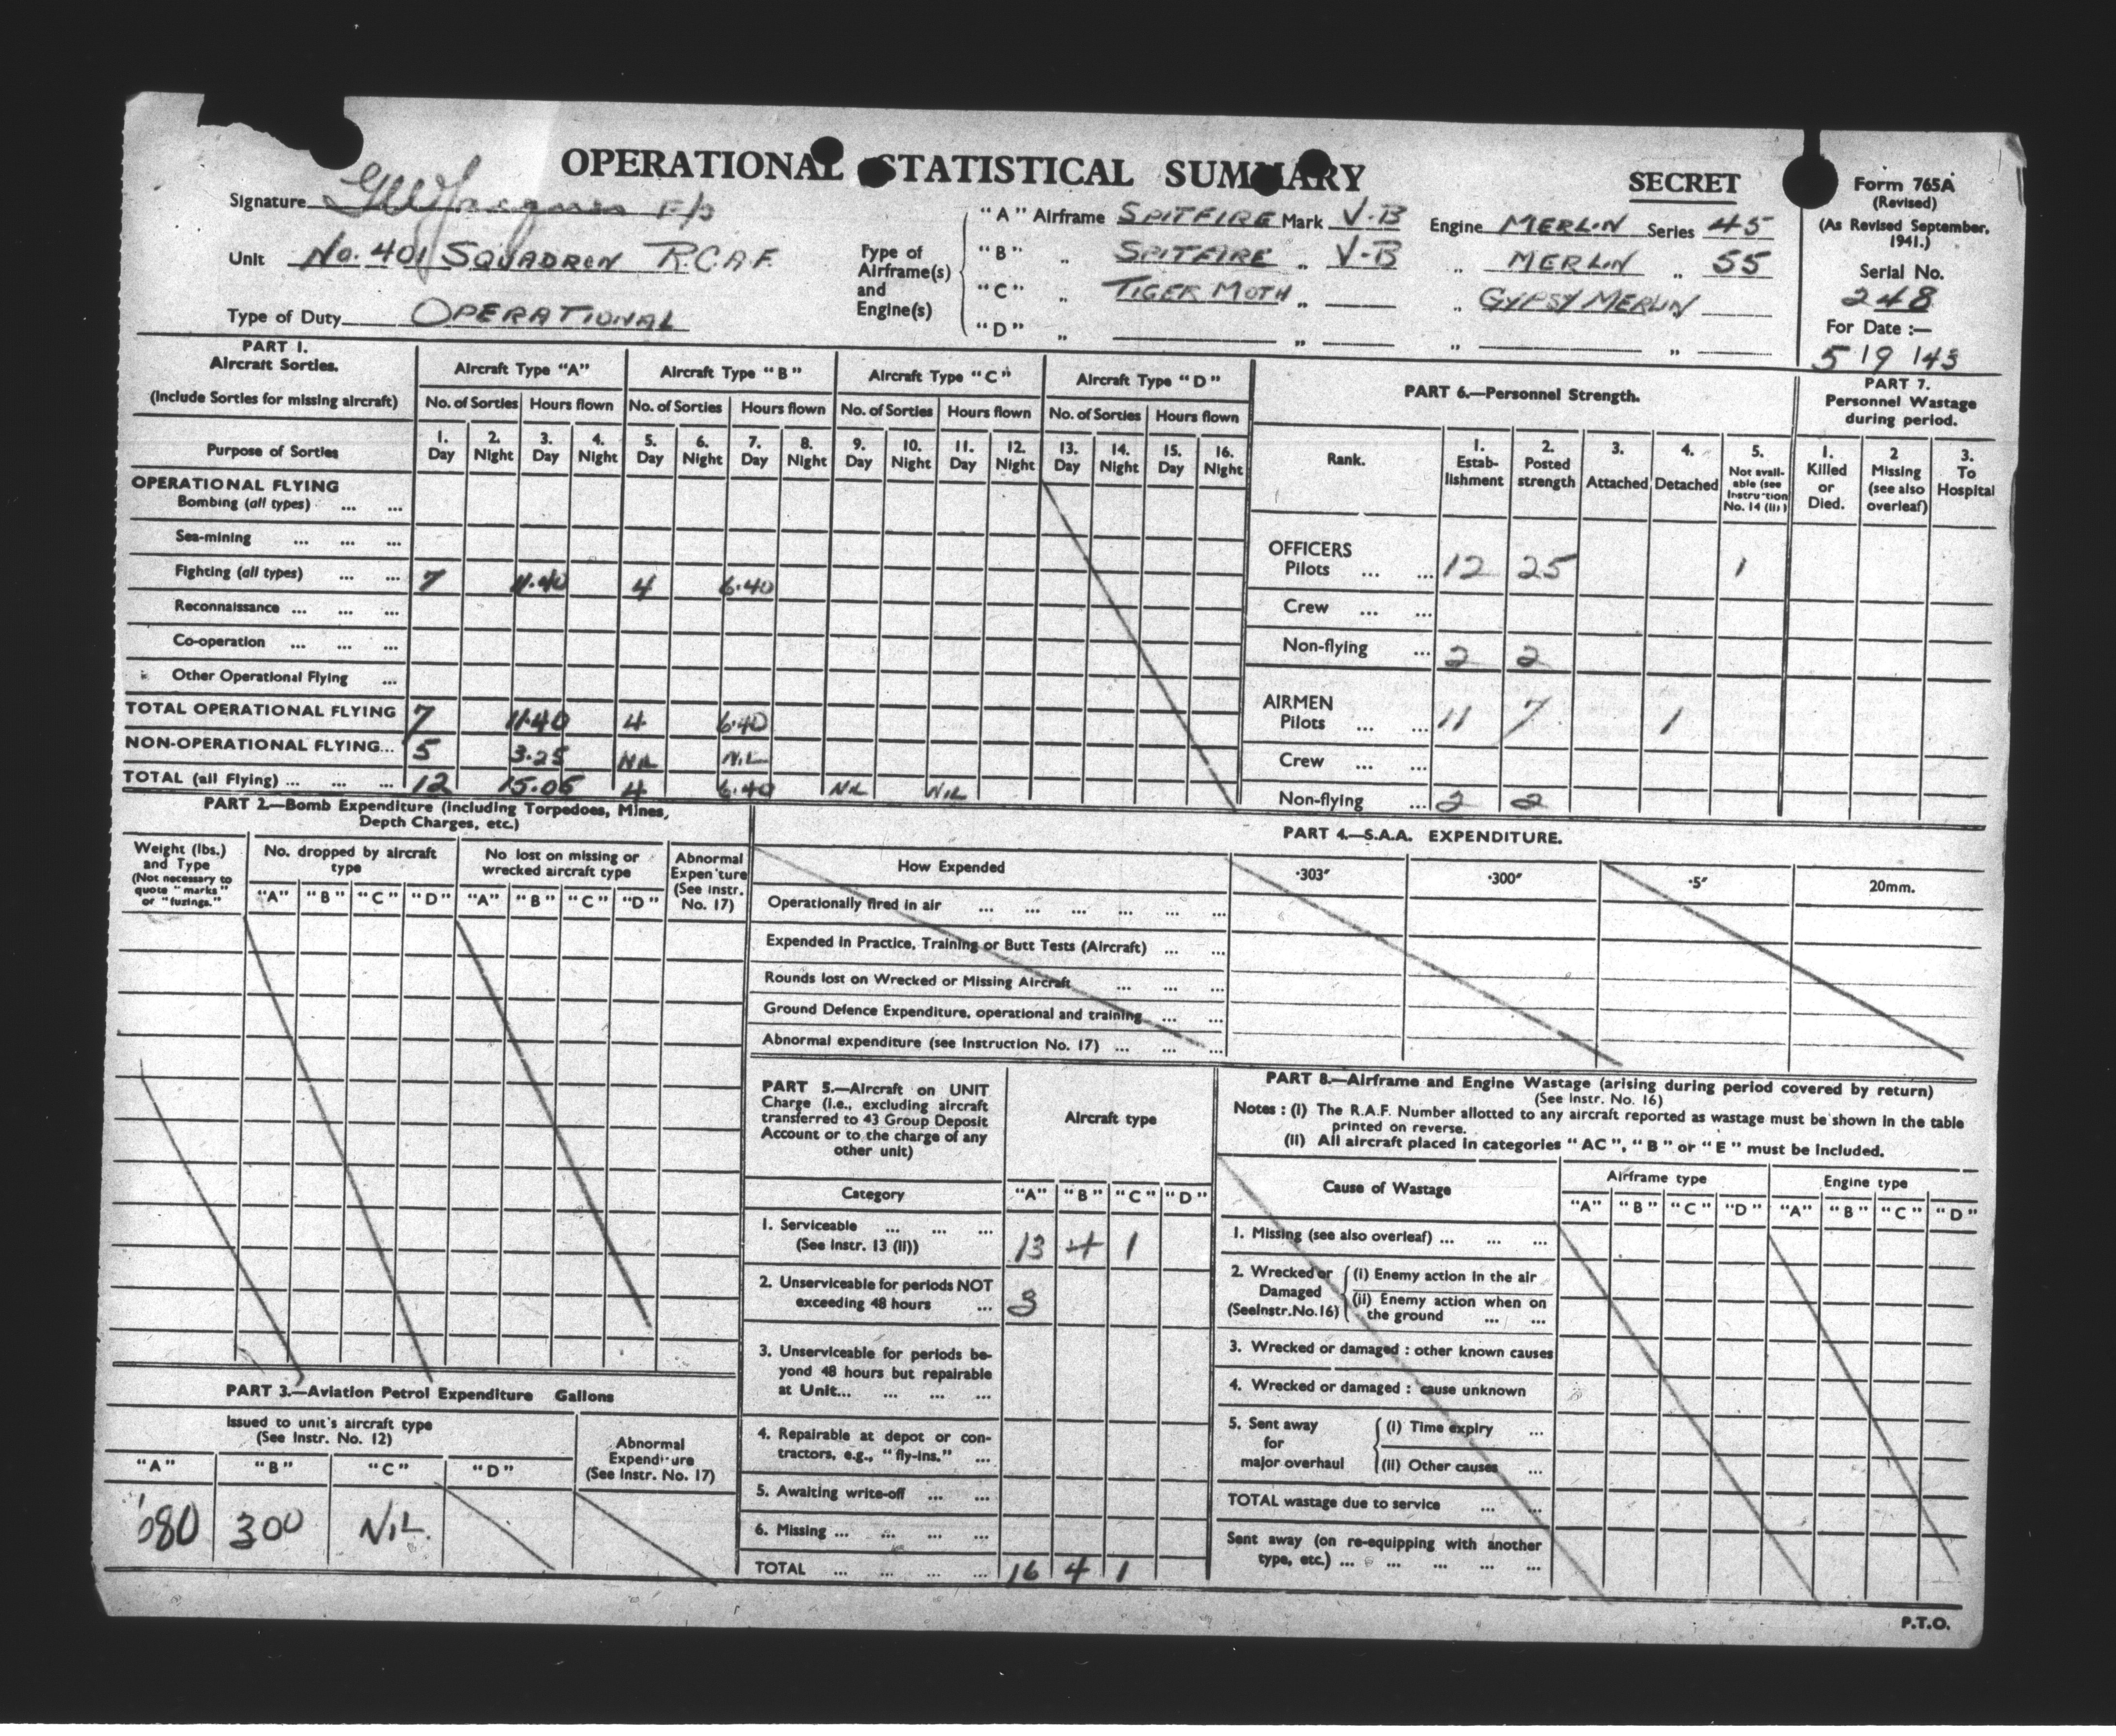 OPERATIONAL STATISTICAL SUMMARY
SECRET
Form 765A
(Revised)
(As Revised September, 1941.)
Serial No.
248
For Date :—
5 19 143
Signature F/O
Unit No. 401 SQUADRON R.C.A.F.
Type of Duty OPERATIONAL
Type of Airframe(s) and Engine(s)
"A" Airframe SPITFIRE Mark V-B Engine MERLIN Series 45
"B" „ SPITFIRE „ V-B „ MERLIN „ 55
"C" „ TIGER MOTH „ „ GYPSY MERLIN
"D" „ „ „ „
PART 1.
Aircraft Sorties.
(Include Sorties for missing aircraft)
Aircraft Type "A" Aircraft Type "B" Aircraft Type "C" Aircraft Type "D"
No. of Sorties Hours flown No. of Sorties Hours flown No. of Sorties Hours flown No. of Sorties Hours flown
Purpose of Sorties
1. Day 2. Night 3. Day 4. Night 5. Day 6. Night 7. Day 8. Night 9. Day 10. Night 11. Day 12. Night 13. Day 14. Night 15. Day 16. Night
OPERATIONAL FLYING
Bombing (all types) ... ...
Sea-mining ... ... ...
Fighting (all types) ... ... 7 11.40 4 6.40
Reconnaissance ... ... ...
Co-operation ... ... ...
Other Operational Flying ...
TOTAL OPERATIONAL FLYING 7 11.40 4 6.40
NON-OPERATIONAL FLYING... 5 3.25 NIL NIL
TOTAL (all Flying) ... ... ... 12 15.05 4 6.40 NIL NIL
PART 6.—Personnel Strength.
Rank.
1. Estab-lishment
2. Posted strength
3. Attached
4. Detached
5. Not avail-able (see Instruction No. 14 (iii)
OFFICERS
Pilots ... ... 12 25 1
Crew ... ...
Non-flying ... 2 2
AIRMEN
Pilots ... ... 11 7 1
Crew ... ...
Non-flying ... 2 2
PART 7.
Personnel Wastage
during period.
1. Killed or Died.
2 Missing (see also overleaf)
3. To Hospital
PART 2.—Bomb Expenditure (including Torpedoes, Mines,
Depth Charges, etc.)
Weight (lbs.)
and Type
(Not necessary to
quote "marks"
or "fuzings."
No. dropped by aircraft type
No lost on missing or wrecked aircraft type
Abnormal Expen'ture (See Instr. No. 17)
"A" "B" "C" "D" "A" "B" "C" "D"
PART 4.—S.A.A. EXPENDITURE.
How Expended ·303″ ·300″ ·5″ 20mm.
Operationally fired in air ... ... ... ... ... ...
Expended in Practice, Training or Butt Tests (Aircraft) ... ...
Rounds lost on Wrecked or Missing Aircraft ... ... ...
Ground Defence Expenditure, operational and training ... ...
Abnormal expenditure (see Instruction No. 17) ... ... ...
PART 3.—Aviation Petrol Expenditure Gallons
Issued to unit's aircraft type
(See Instr. No. 12)
Abnormal
Expend··ure
(See Instr. No. 17)
"A" "B" "C" "D"
680 300 NIL.
PART 5.—Aircraft on UNIT
Charge (i.e., excluding aircraft
transferred to 43 Group Deposit
Account or to the charge of any
other unit)
Aircraft type
Category "A" "B" "C" "D"
1. Serviceable ... ... ...
(See Instr. 13 (ii)) 13 4 1
2. Unserviceable for periods NOT
exceeding 48 hours ... 3
3. Unserviceable for periods be-
yond 48 hours but repairable
at Unit... ... ... ...
4. Repairable at depot or con-
tractors, e.g., "fly-ins." ...
5. Awaiting write-off ... ...
6. Missing ... ... ... ...
TOTAL ... ... ... ... 16 4 1
PART 8.—Airframe and Engine Wastage (arising during period covered by return)
(See Instr. No. 16)
Notes : (i) The R.A.F. Number allotted to any aircraft reported as wastage must be shown in the table
printed on reverse.
(ii) All aircraft placed in categories "AC", "B" or "E" must be included.
Cause of Wastage Airframe type Engine type
"A" "B" "C" "D" "A" "B" "C" "D"
1. Missing (see also overleaf) ... ... ...
2. Wrecked or Damaged (SeeInstr.No.16)
(i) Enemy action in the air
(ii) Enemy action when on
the ground ... ...
3. Wrecked or damaged : other known causes
4. Wrecked or damaged : cause unknown
5. Sent away for major overhaul
(i) Time expiry ...
(ii) Other causes ...
TOTAL wastage due to service ... ...
Sent away (on re-equipping with another
type, etc.) ... ... ... ... ...
P.T.O.